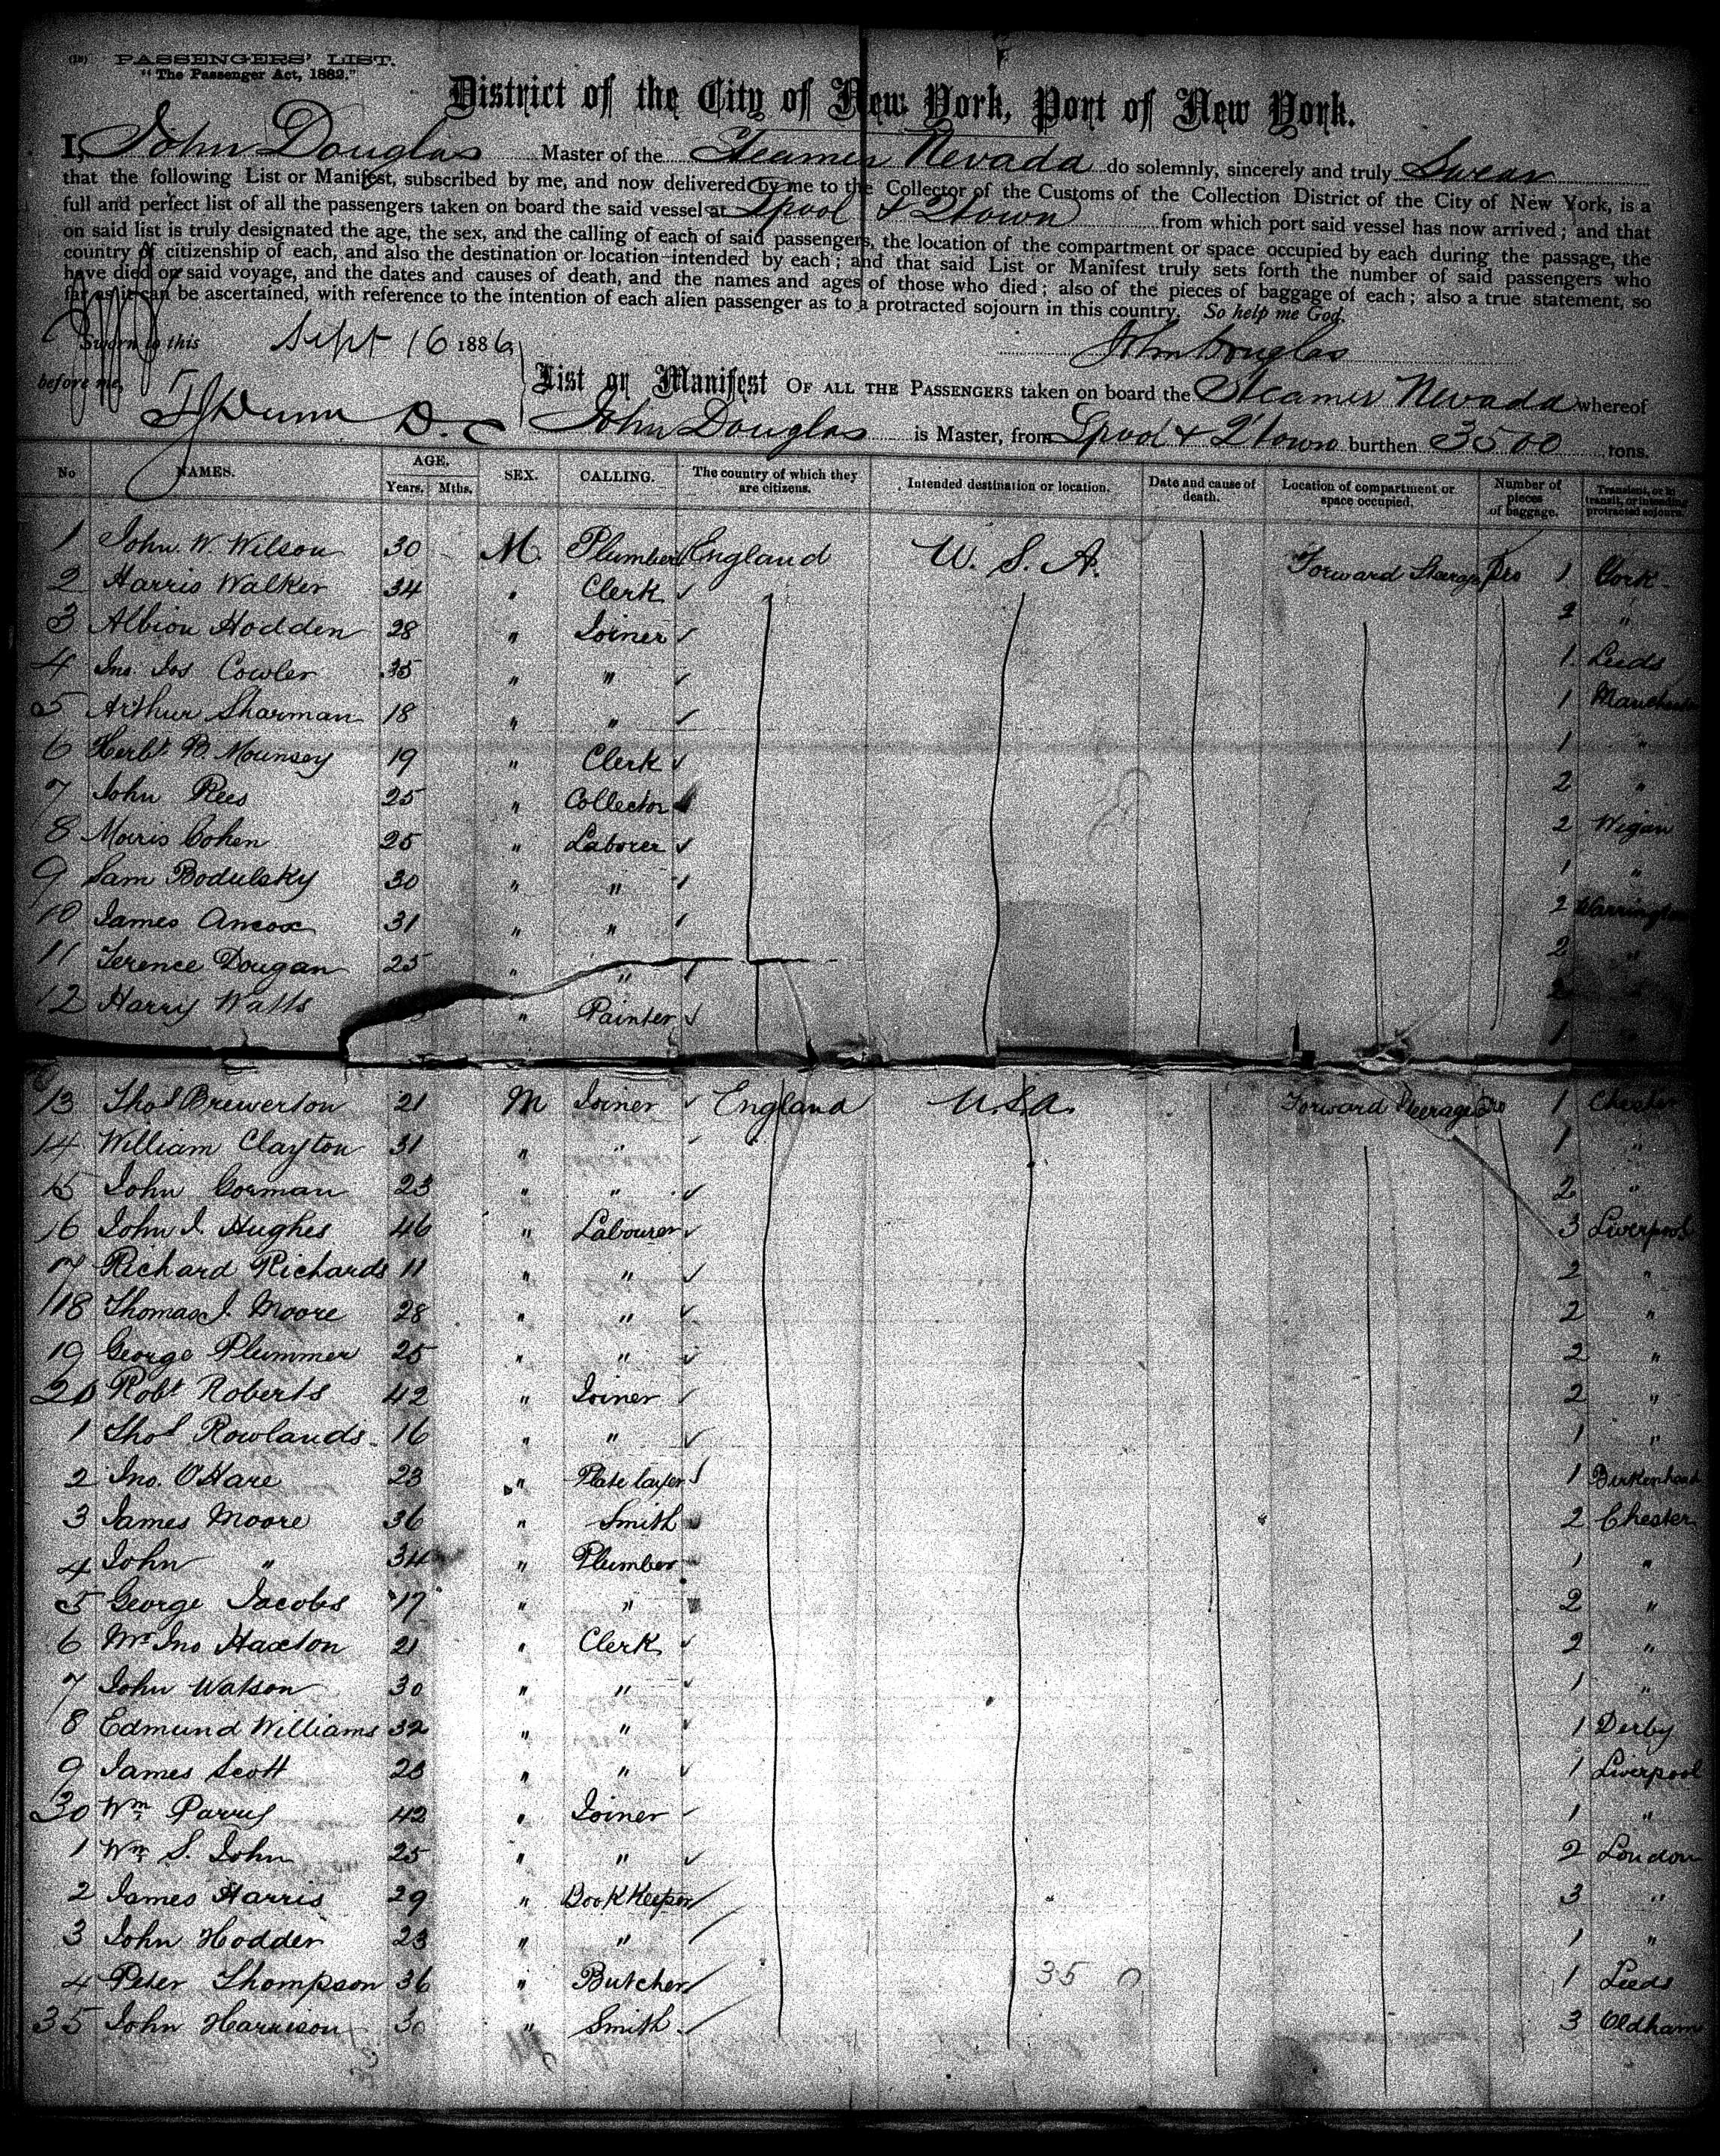 (18) PASSENGERS' LIST.
"The Passenger Act, 1882."
District of the City of New York, Port of New York.
I, John Douglas Master of the Steamer Nevada do solemnly, sincerely and truly Swear
that the following List or Manifest, subscribed by me, and now delivered by me to the Collector of the Customs of the Collection District of the City of New York, is a
full and perfect list of all the passengers taken on board the said vessel at Lpool & Qtown from which port said vessel has now arrived; and that
on said list is truly designated the age, the sex, and the calling of each of said passengers, the location of the compartment or space occupied by each during the passage, the
country of citizenship of each, and also the destination or location intended by each; and that said List or Manifest truly sets forth the number of said passengers who
have died on said voyage, and the dates and causes of death, and the names and ages of those who died; also of the pieces of baggage of each; also a true statement, so
far as it can be ascertained, with reference to the intention of each alien passenger as to a protracted sojourn in this country. So help me God.
Sworn to this Sept 16 1886, John Douglas
before me,
List or Manifest OF ALL THE PASSENGERS taken on board the Steamer Nevada whereof
John Douglas is Master, from Lpool & Q'town burthen 3500 tons.
No NAMES. AGE. Years. Mths. SEX. CALLING. The country of which they are citizens. Intended destination or location. Date and cause of death. Location of compartment or space occupied. Number of pieces of baggage. Transient, or in transit, or intending protracted sojourn.
1 John W. Wilson 30 M. Plumber England U. S. A. Forward Steerage Pro 1 York
2 Harris Walker 34 " Clerk 2 "
3 Albion Hodden 28 " Joiner 1 Leeds
4 Jno. Jos Cowler 35 " " 1 Manchester
5 Arthur Sharman 18 " " 1 "
6 Herbt B. Mounsey 19 " Clerk 2 "
7 John Rees 25 " Collector 2 Wigan
8 Morris Cohen 25 " Laborer 1 "
9 Sam Bodulsky 30 " " 2 Warrington
10 James Amcox 31 " " 2 "
11 Terence Dougan 25 " " 2 "
12 Harry Watts " Painter 1 "
13 Thos Brewerton 21 M Joiner England U.S.A. Forward Steerage Pro 1 Chester
14 William Clayton 31 " " 1 "
15 John Gorman 23 " " 2 "
16 John J. Hughes 46 " Labourer 3 Liverpool
17 Richard Richards 11 " " 2 "
18 Thomas J. Moore 28 " " 2 "
19 George Plummer 25 " " 2 "
20 Robt Roberts 42 " Joiner 2 "
1 Thos Rowlands 16 " " 1 "
2 Jno. O'Hare 23 " Plate layer 1 Birkenhead
3 James Moore 36 " Smith 2 Chester
4 John " 34 " Plumber 1 "
5 George Jacobs 17 " " 2 "
6 Mr Jno Haxton 21 " Clerk 2 "
7 John Watson 30 " " 1 "
8 Edmund Williams 32 " " 1 Derby
9 James Scott 23 " " 1 Liverpool
30 Wm Parry 42 " Joiner 1 "
1 Wm S. John 25 " " 2 London
2 James Harris 29 " BookKeeper 3 "
3 John Hodder 23 " " 1 "
4 Peter Thompson 36 " Butcher 35 0 1 Leeds
35 John Harrison 30 " Smith 3 Oldham